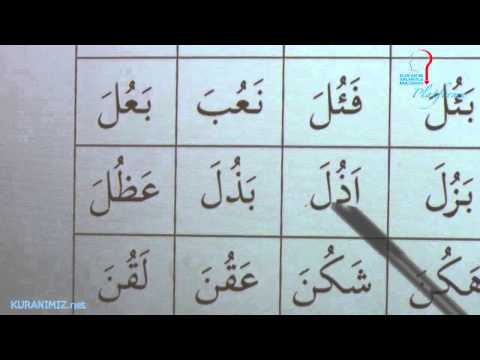 بَئُلَ فَئُلَ نَعُبَ بَعُلَ
بَزُلَ اَذُلَ بَذُلَ عَظُلَ
هَكُنَ شَكُنَ عَقُنَ لَقُنَ
KURANIMIZ.net